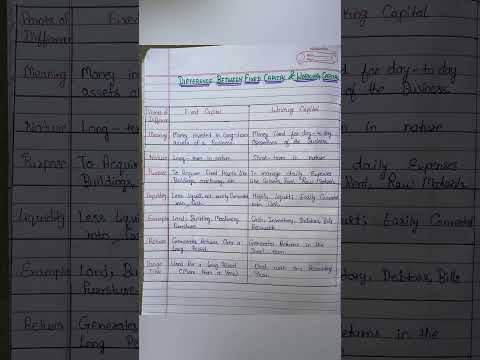 DIFFERENCE BETWEEN FIXED CAPITAL & WORKING CAPITAL
Points of Difference
Fixed Capital
Working Capital
Meaning
Money invested in long-term
assets of a business
Money Used for day-to-day
operations of the Business
Nature
Long-term in nature
Short-term in nature
Purpose
To Acquire Fixed Assets like
Buildings, etc
To manage daily Expenses
like Rent, Raw Materials
Liquidity
Less liquid, not easily Converted
into Cash
Highly liquid, Easily Converted
into Cash
Example
Land, Building, Machinery,
Furniture
Cash, Inventory, Debtors, Bills
Return
Generates Returns Over a
Long Period
Generates Returns in the
Short term
Usage
Used for a Long Period
(More than a Year)
Points of
Difference
Fixed
Meaning
Money in
assets
Nature
Long-te
Purpose
To Acquire
Liquidity
Less liquid
into
Example
Land, Bu
Furniture
Return
Generat
Long Pe
king Capital
for day-to day
of the Business
in nature
daily Expenses
Rent, Raw Materials
Easily Converted
tory, Debtors, Bills
turns in the